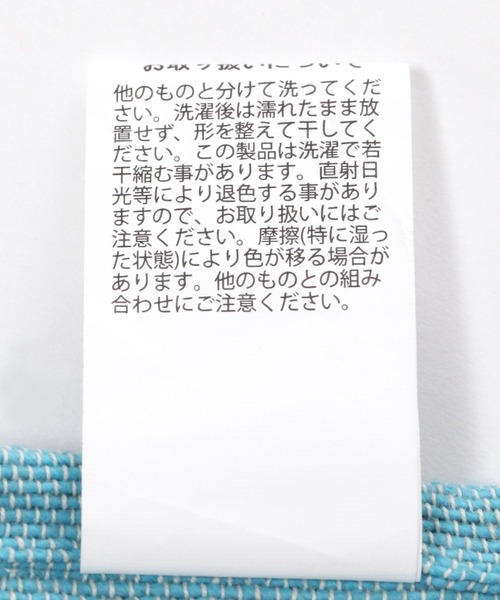 お取り扱いについて
他のものと分けて洗ってくだ
さい。洗濯後は濡れたまま放
置せず、形を整えて干してく
ださい。この製品は洗濯で若
干縮む事があります。直射日
光等により退色する事があり
ますので、お取り扱いにはご
注意ください。摩擦(特に湿っ
た状態)により色が移る場合が
あります。他のものとの組み
合わせにご注意ください。